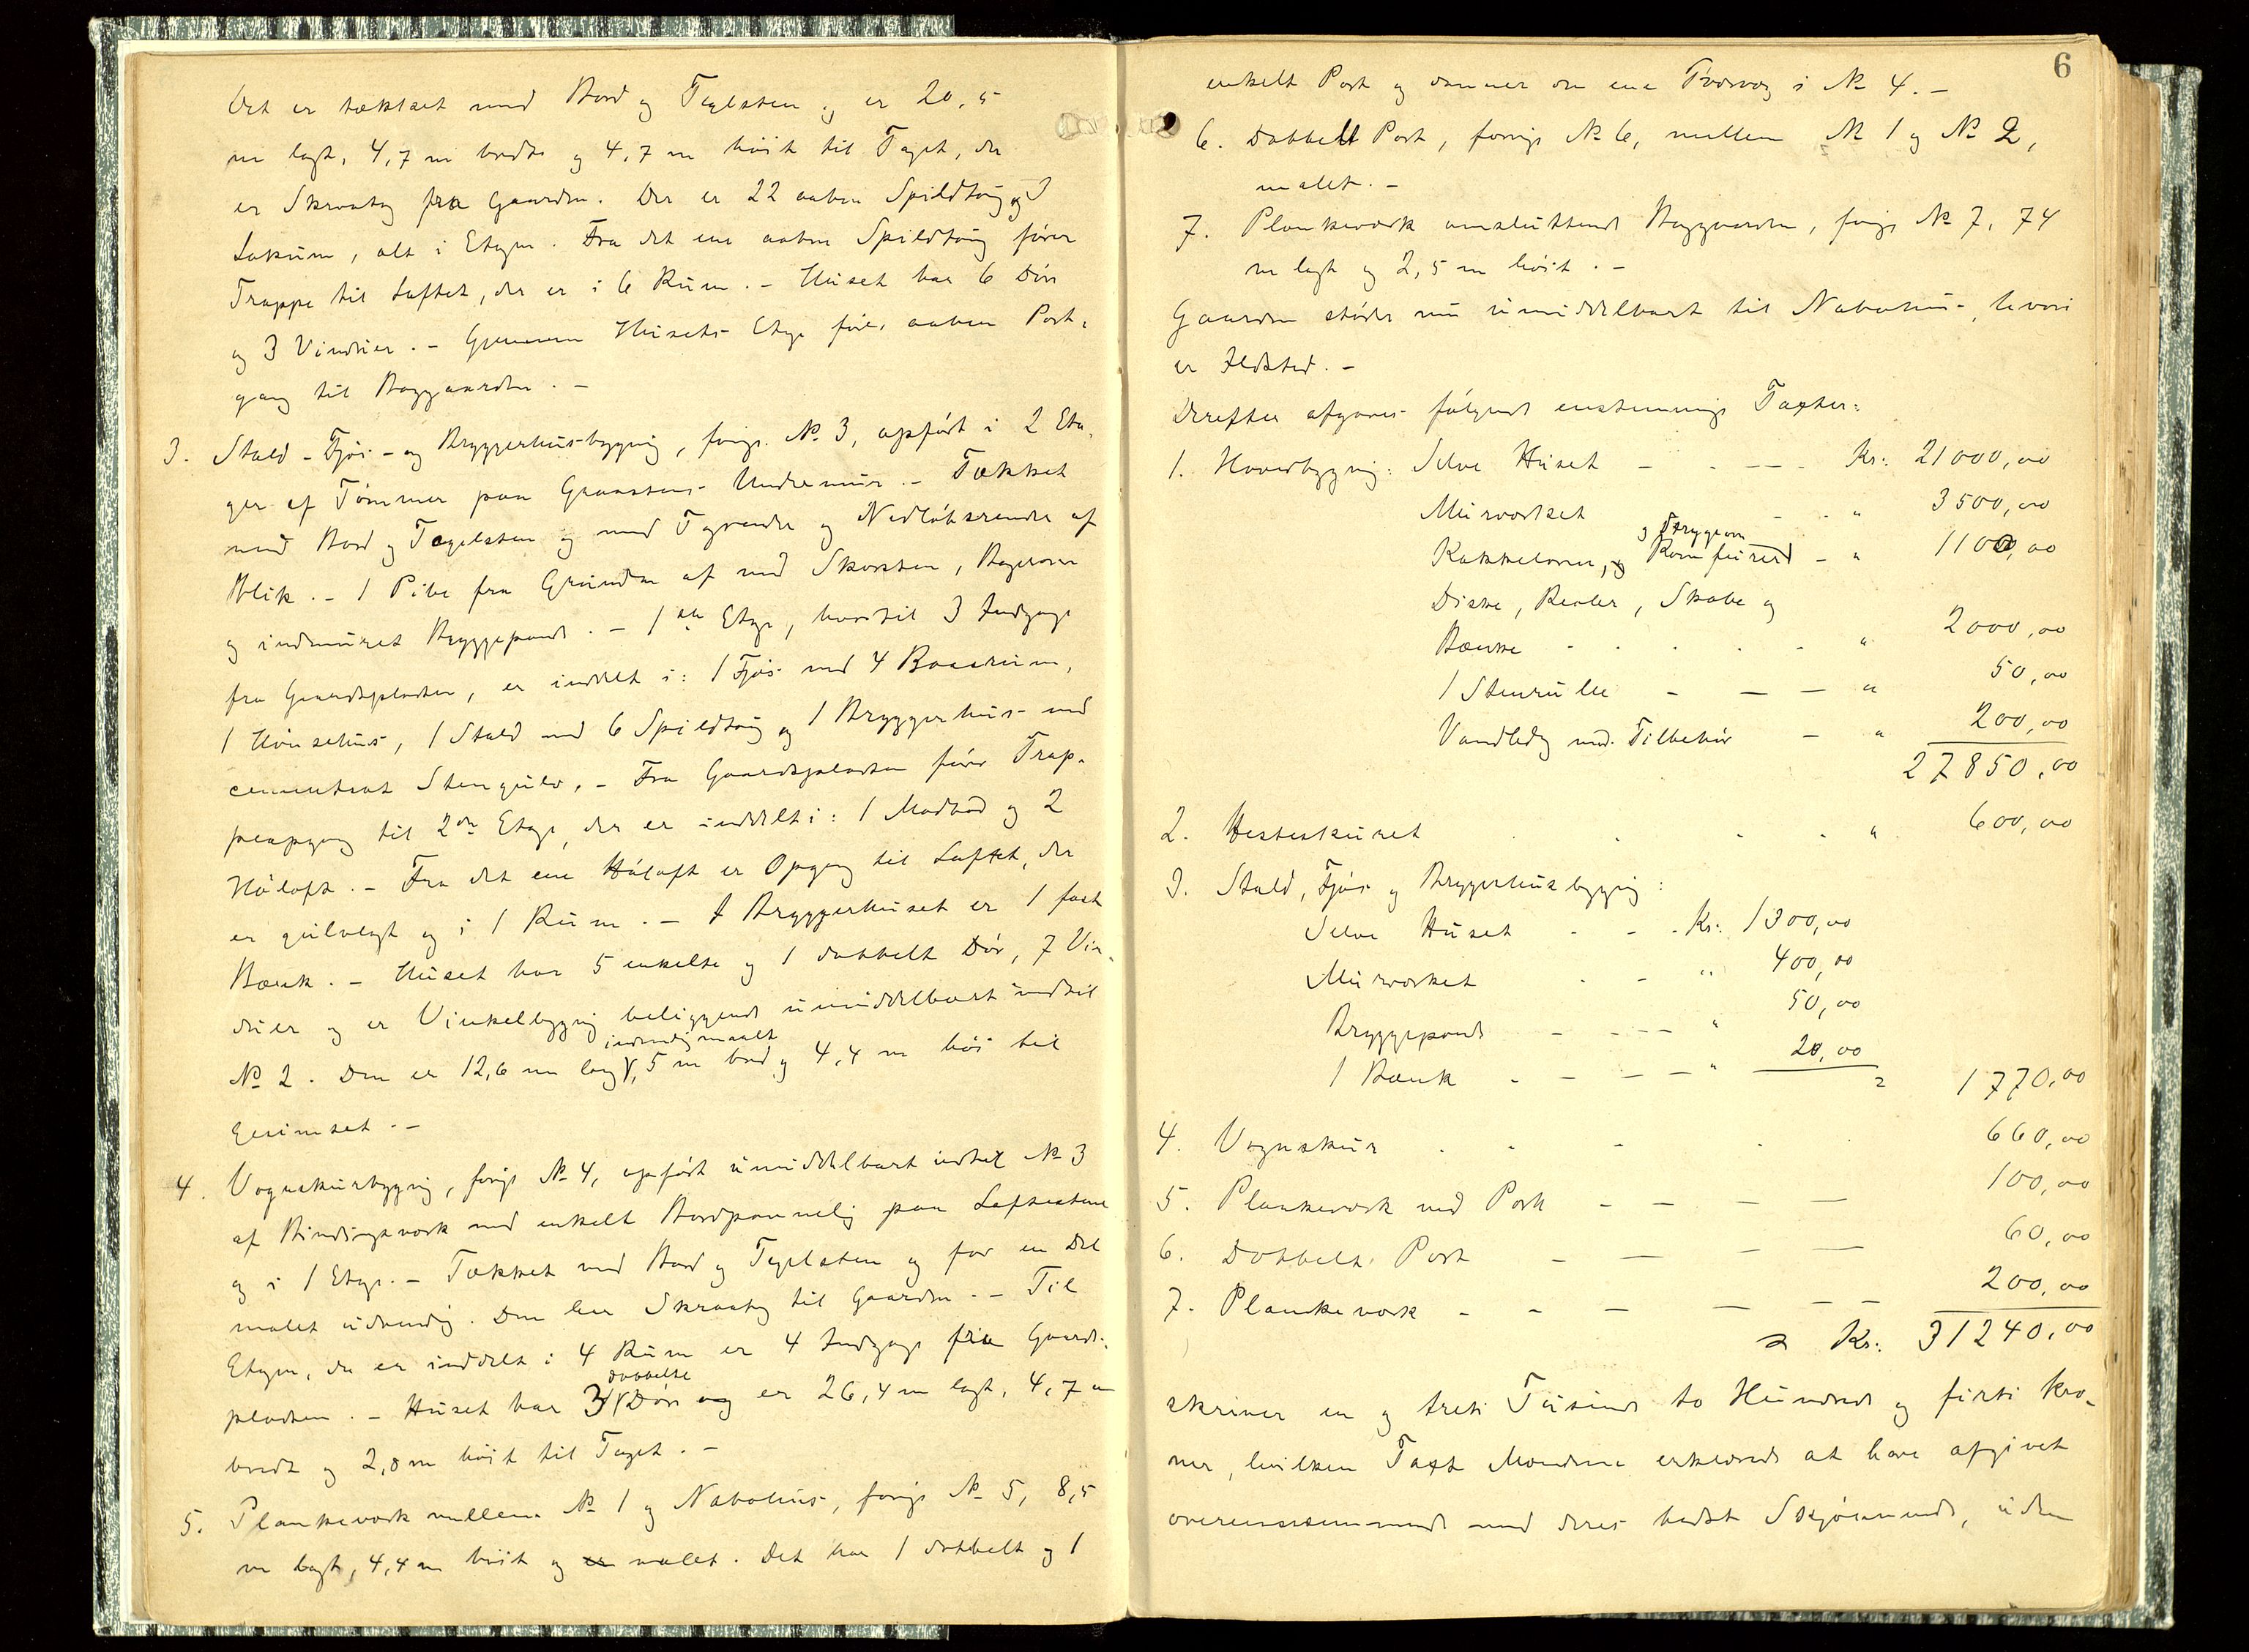 Det er tækket med Bord og Teglsten og er 20,5
m langt, 4,7 m bredt og 4,7 m höit til Taget, der
er Skraatag fra Gaarden. Der er 22 aabne Spildtoug og 1
Lokum, alt i Etagen. Fra det ene aabne Spildtoug förer
Trappe til Loftet, der er i 6 Rum. - Huset har 6 Döre
og 3 Vinduer. - Gjennem Husets Etage förer aaben Port-
gang til Baggaarden. -
3. Stald- Fjös- og Bryggerhusbygning, forrige No 3, opfört i 2 Eta-
ger af Tömmer paa Graastens Undermur. - Tækket
med Bord og Teglsten og med Tagrender og Nedlöbsrender af
Blik. - 1 Pibe fra Grunden af med Skorsten, Bagerovn
og indmuret Bryggepande. - 1ste Etage, hvortil 3 Indgange
fra Gaardspladsen, er inddelt i: 1 Fjös med 4 Baasrum,
1 Hönsehus, 1 Stald med 6 Spildtoug og 1 Bryggerhus med
cementeret Stengulv. - Fra Gaardspladsen förer Trap-
peopgang til 2den Etage, der er inddelt i: 1 Madbod og 2
Höloft. - Fra det ene Höloft er Opgang til Loftet, der
er gulvlagt og i 1 Rum. - I Bryggerhuset er 1 fast
Bænk. - Huset har 5 enkelte og 1 dobbelt Dör, 7 Vin-
duer og er Vinkelbygning beliggende umiddelbart indtil
indvendig maalt
No 2. Den er 12,6 m lang, 5 m bred og 4,4 m höi til
Gesimset. -
4. Vognskurbygning, forrige No 4, opfört umiddelbart indtil No 3
af Bindingsværk med enkelt Bordpanneling paa Löftestene
og i 1 Etage. - Tækket med Bord og Teglsten og for en Del
malet udvendig. Den har Skraatag til Gaarden. - Til
Etagen, der er inddelt i 4 Rum er 4 Indgange fra Gaards-
dobbelte
pladsen. - Huset har 3 Döre og er 26,4 m langt, 4,7 m
bredt og 2,8 m höit til Taget. -
5. Plankeværk mellem No 1 og Nabohus, forrige No 5, 8,5
m langt, 4,4 m höit og er malet. Det har 1 dobbelt og 1
6
enkelt Port og danner den ene Tværvæg i No 4. -
6. Dobbelt Port, forrige No 6, mellem No 1 og No 2,
malet. -
7. Plankeværk omsluttende Baggaarden, forrige No 7, 74
m langt og 2,5 m höit. -
Gaarden stöder nu umiddelbart til Nabohus, hvori
er Ildsted. -
Derefter afgaves fölgende enstemmige Taxter:
1. Hovedbygning: Selve Huset - - - - Kr: 21000,00
Murværket - - " 3500,00
og Strygeovn
Kakkelovne, og Komfurer - " 1100,00
Diske, Reoler, Skabe og
Bænke - - - - - " 2000,00
1 Stenrulle - - - " 50,00
Vandledning med Tilbehör - " 200,00
27850,00
2. Hesteskuret - - - - " 600,00
3. Stald, Fjös og Bryggerhusbygning:
Selve Huset - - - Kr: 1300,00
Murværket - - " 400,00
Bryggepande - - - - " 50,00
1 Bænk - - - - " 20,00
= 1770,00
4. Vognskur - - - - - 660,00
5. Plankeværk med Port - - - - 100,00
6. Dobbelt Port - - - - 60,00
7. Plankeværk - - - - - - 200,00
= Kr: 31240,00
skriver en og treti Tusinde to Hundrede og firti Kro-
ner, hvilken Taxt Mændene erklærede at have afgivet
overensstemmende med deres bedste Skjönnende, uden